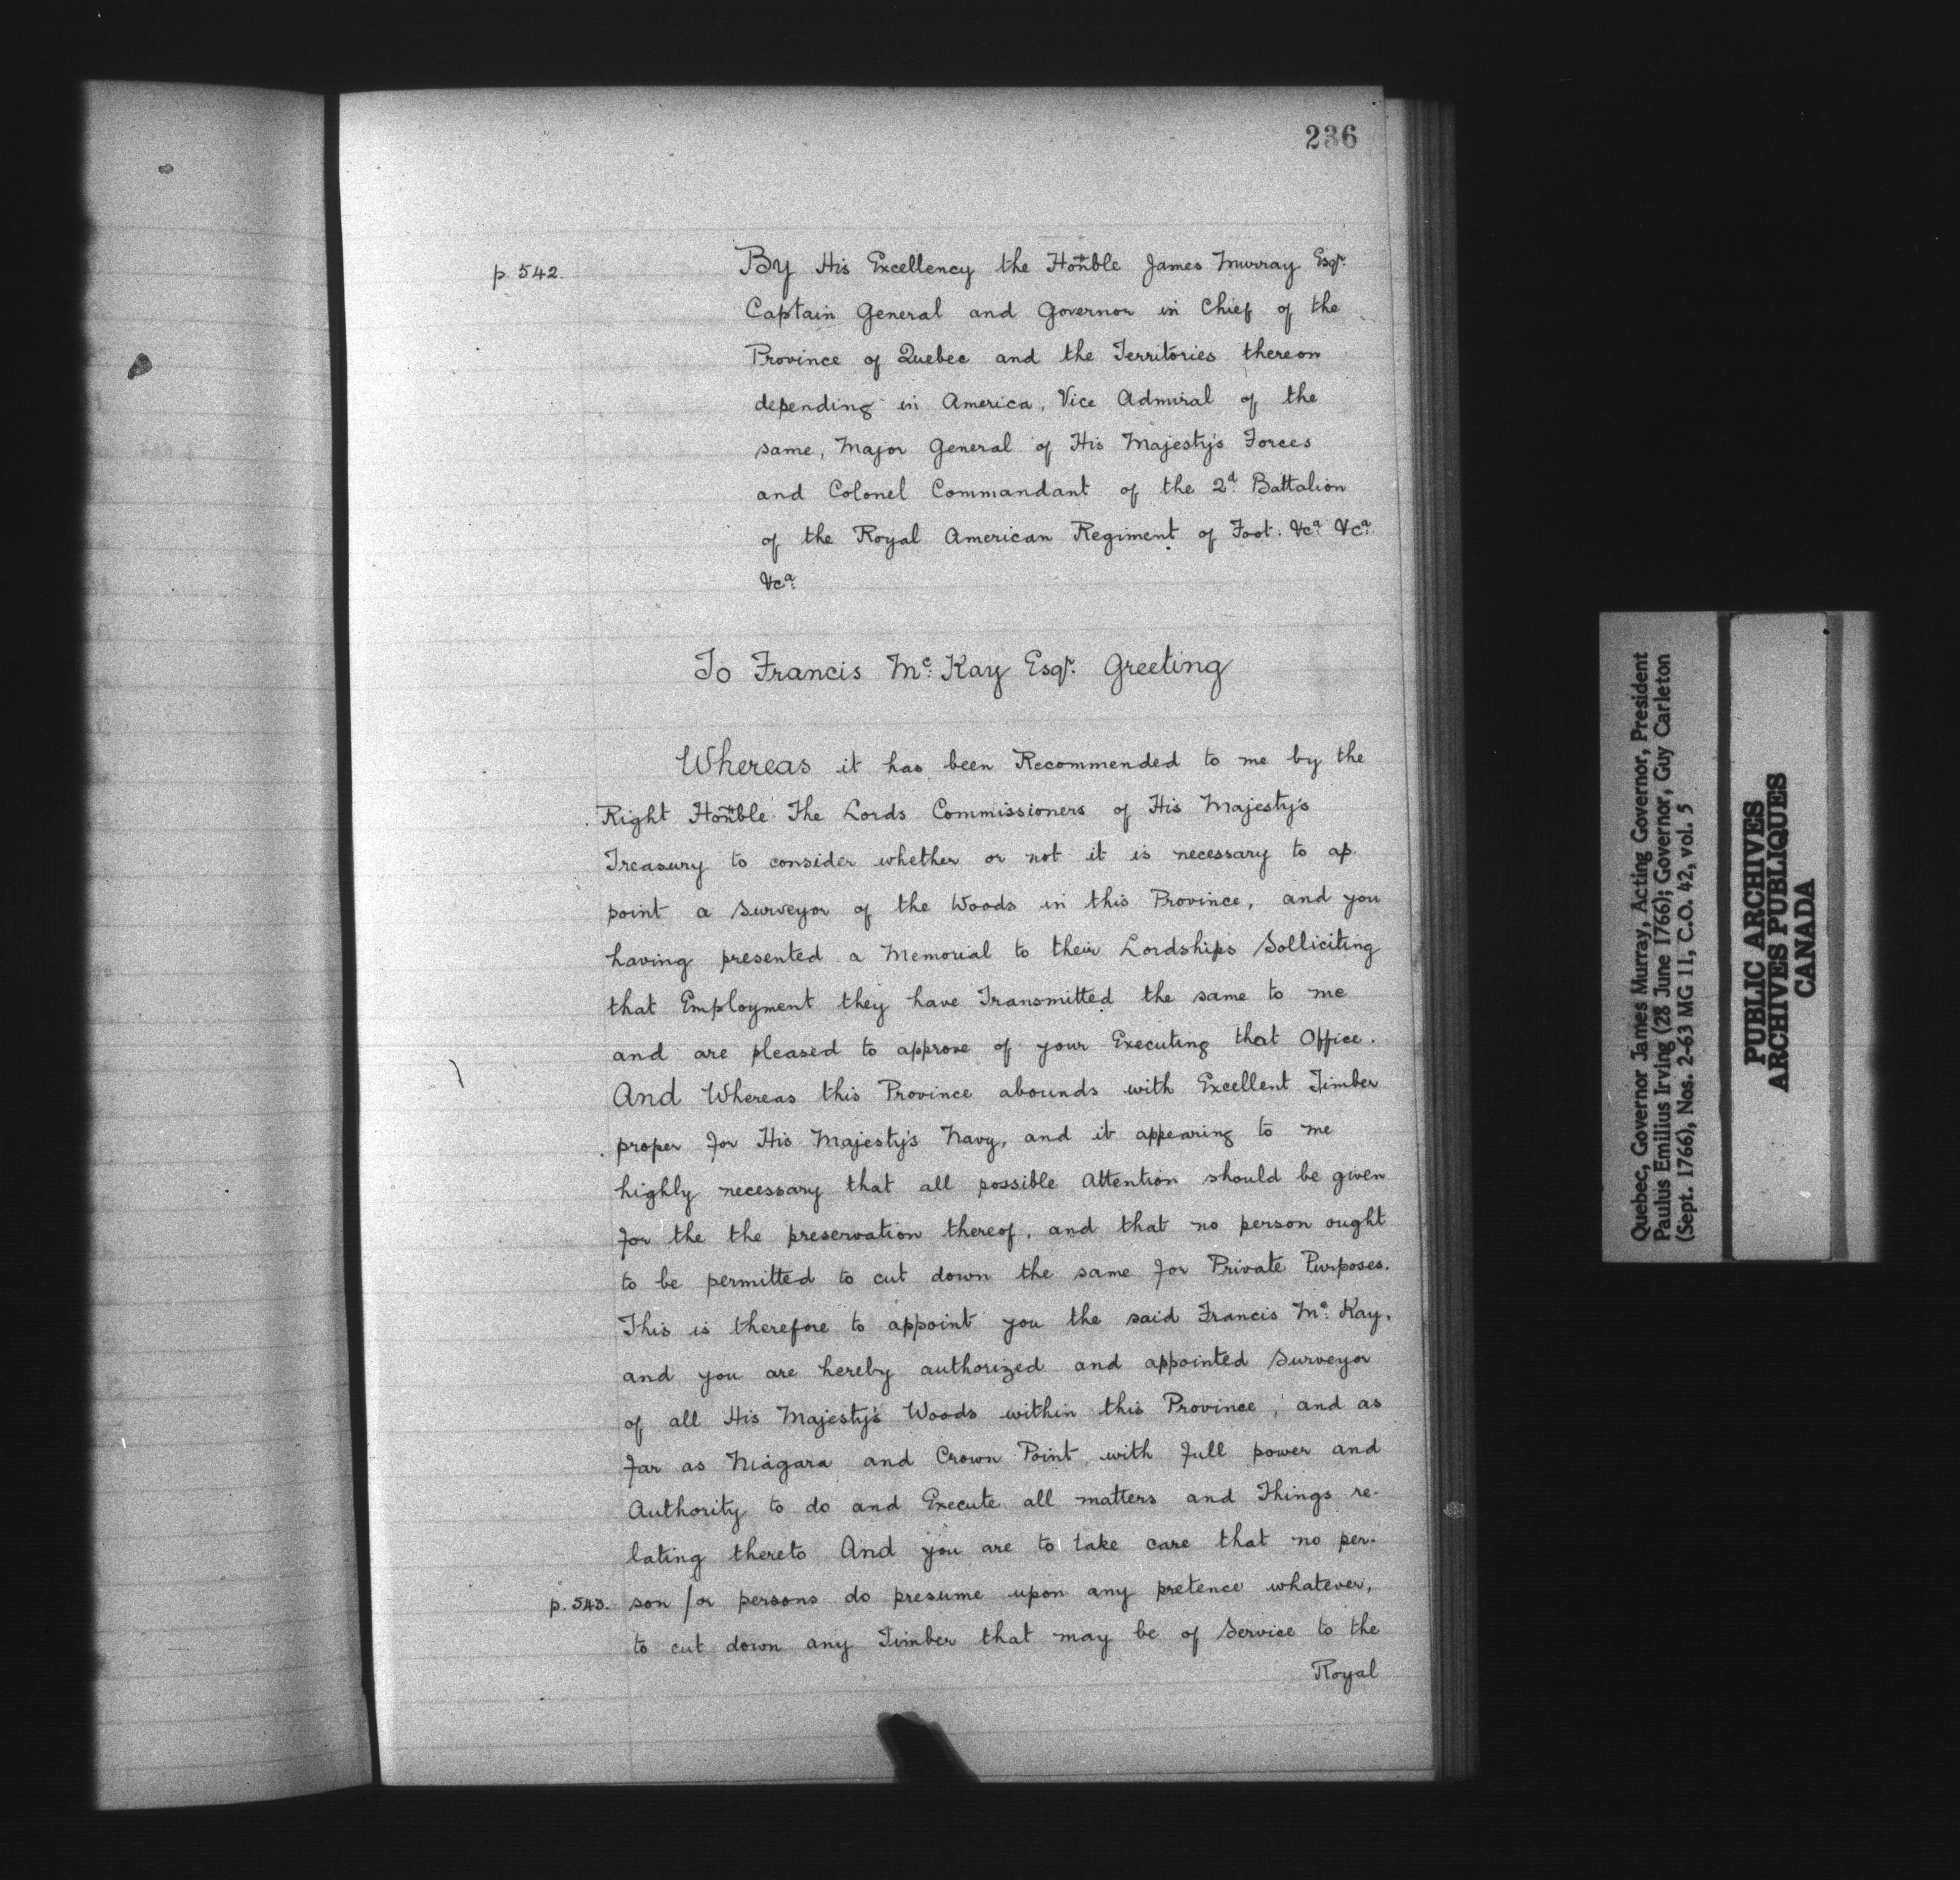 236
p. 542.
By His Excellency the Honble James Murray Esqr.
Captain General and Governor in Chief of the
Province of Quebec and the Territories thereon
depending in America, Vice Admiral of the
same, Major General of His Majesty's Forces
and Colonel Commandant of the 2d. Battalion
of the Royal American Regiment of Foot. &ca. &ca.
&ca.
To Francis Mc. Kay Esqr. Greeting
Whereas it has been Recommended to me by the
Right Honble The Lords Commissioners of His Majesty's
Treasury to consider whether or not it is necessary to ap-
point a Surveyor of the Woods in this Province, and you
having presented a Memorial to their Lordships Solliciting
that Employment they have Transmitted the same to me
and are pleased to approve of your Executing that Office.
And Whereas this Province abounds with Excellent Timber
proper for His Majesty's Navy, and it appearing to me
highly necessary that all possible Attention should be given
for the the preservation thereof, and that no person ought
to be permitted to cut down the same for Private Purposes.
This is therefore to appoint you the said Francis Mc. Kay,
and you are hereby authorized and appointed Surveyor
of all His Majesty's Woods within this Province, and as
far as Niagara and Crown Point, with full power and
Authority to do and Execute all matters and Things re-
lating thereto And you are to take care that no per-
p. 543. son /or persons do presume upon any pretence whatever,
to cut down any Timber that may be of Service to the
Royal
Quebec, Governor James Murray, Acting Governor, President
Paulus Emilius Irving (28 June 1766); Governor, Guy Carleton
(Sept. 1766), Nos. 2-63 MG 11, C.O. 42, vol. 5
PUBLIC ARCHIVES
ARCHIVES PUBLIQUES
CANADA